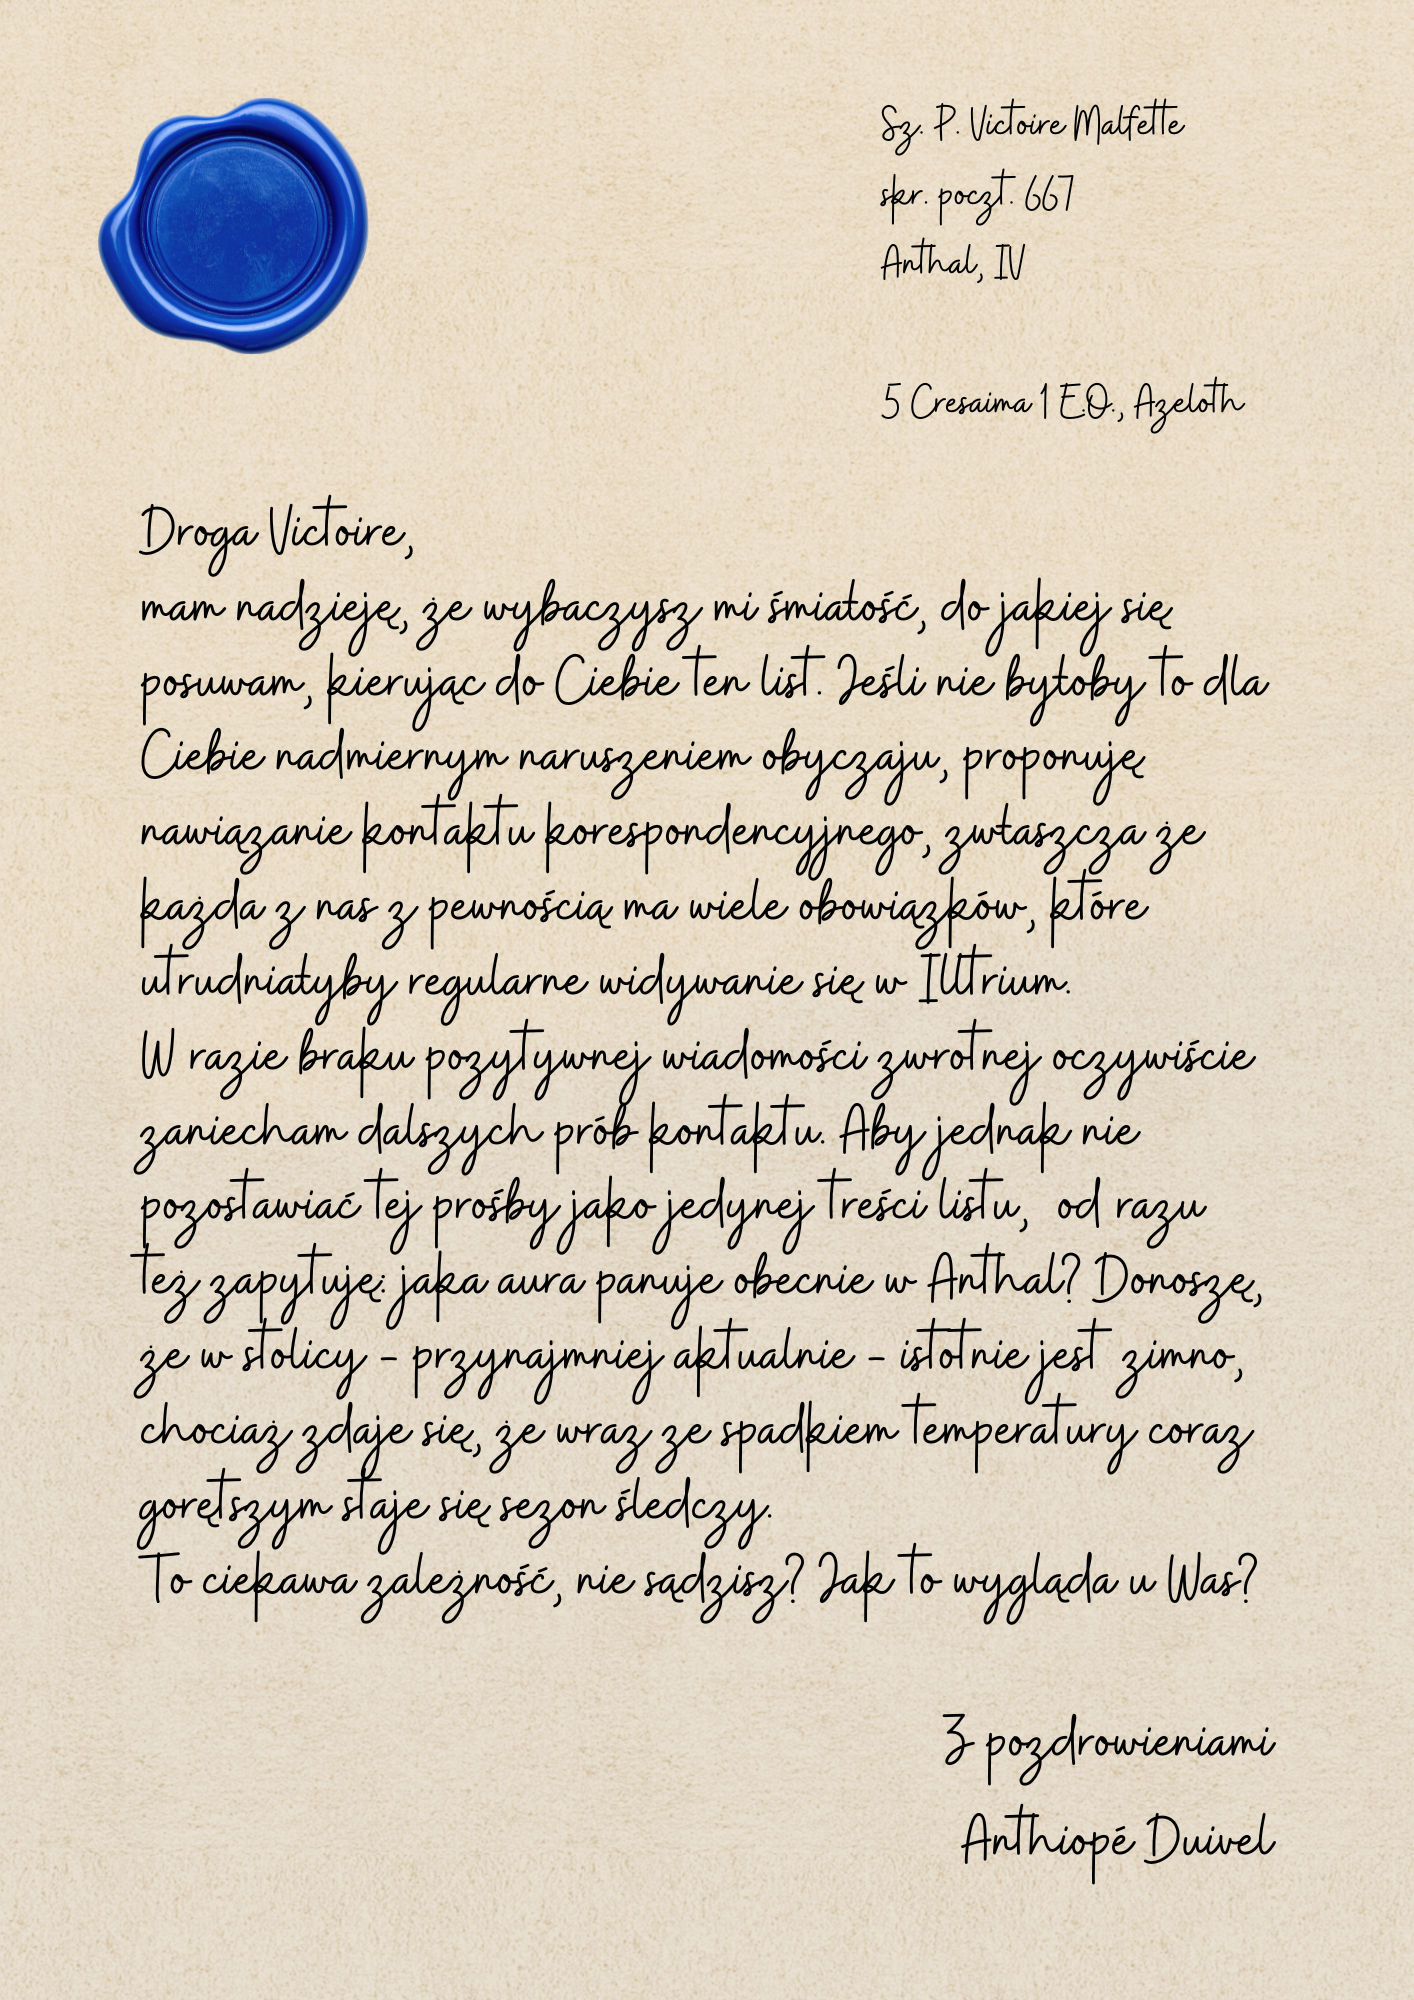 Sz. P. Victoire Malfette
skr. poczt. 667
Anthal, IV
5 Cresaima 1 E.O., Azeloth
Droga Victoire,
mam nadzieję, że wybaczysz mi śmiałość, do jakiej się
posuwam, kierując do Ciebie ten list. Jeśli nie byłoby to dla
Ciebie nadmiernym naruszeniem obyczaju, proponuję
nawiązanie kontaktu korespondencyjnego, zwłaszcza że
każda z nas z pewnością ma wiele obowiązków, które
utrudniałyby regularne widywanie się w Illtrium.
W razie braku pozytywnej wiadomości zwrotnej oczywiście
zaniecham dalszych prób kontaktu. Aby jednak nie
pozostawiać tej prośby jako jedynej treści listu, od razu
też zapytuję: jaka aura panuje obecnie w Anthal? Donoszę,
że w stolicy - przynajmniej aktualnie - istotnie jest zimno,
chociaż zdaje się, że wraz ze spadkiem temperatury coraz
gorętszym staje się sezon śledczy.
To ciekawa zależność, nie sądzisz? Jak to wygląda u Was?
Z pozdrowieniami
Anthiopé Duivel